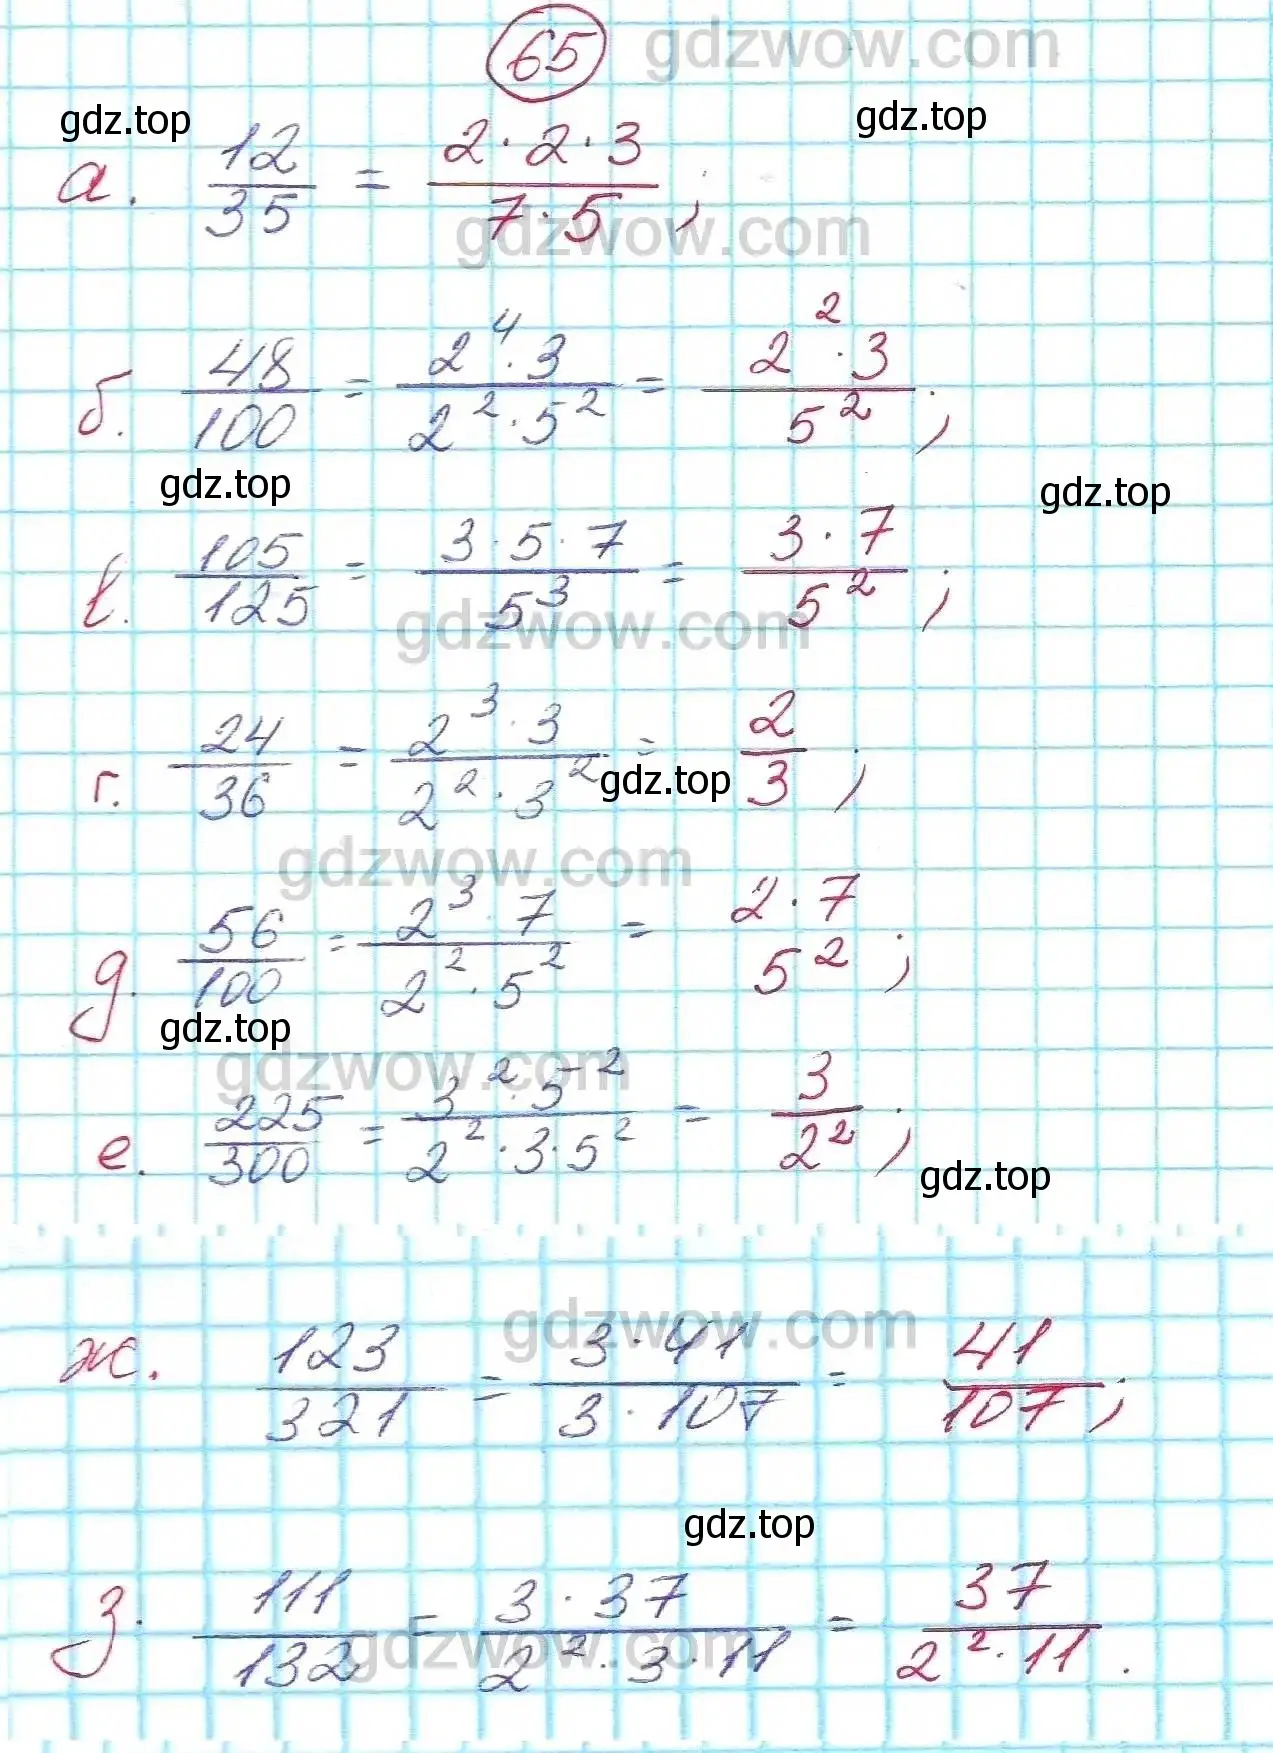 65 gdzwow.com
gdz.top gdz.top
а. 12/35 = 2·2·3/7·5,
gdzwow.com
б. 48/100 = 2⁴·3/2²·5² = 2²·3/5²;
gdz.top gdz.top
в. 105/125 = 3·5·7/5³ = 3·7/5²;
gdzwow.com
г. 24/36 = 2³·3/2²·3² = 2/3;
gdz.top
gdzwow.com
д. 56/100 = 2³·7/2²·5² = 2·7/5²;
gdz.top
gdzwow.com
е. 225/300 = 3²·5²/2²·3·5² = 3/2²;
gdz.top
gdzwow.com
ж. 123/321 = 3·41/3·107 = 41/107;
gdz.top
з. 111/132 = 3·37/2²·3·11 = 37/2²·11.
gdzwow.com